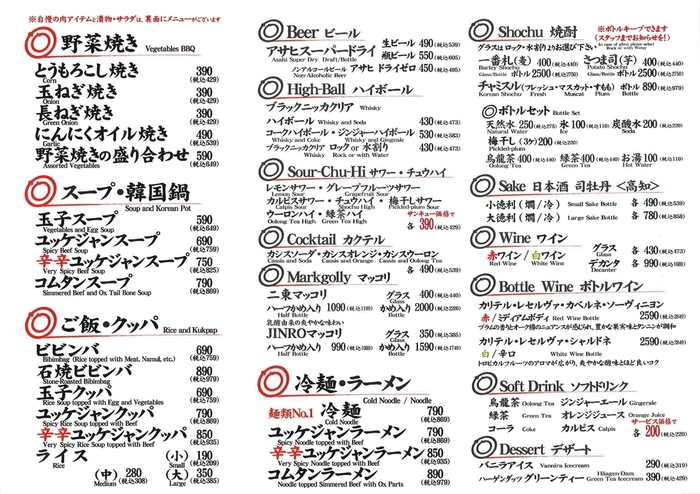 ※自慢の肉アイテムと漬物・サラダは、裏面にメニューがございます
野菜焼き Vegetables BBQ
とうもろこし焼き 390
Corn (税込429)
玉ねぎ焼き 390
Onion (税込429)
長ねぎ焼き 390
Green Onion (税込429)
にんにくオイル焼き 490
Garlic (税込539)
野菜焼きの盛り合わせ 590
Assorted Vegetables (税込649)
スープ・韓国鍋
Soup and Korean Pot
玉子スープ 590
Vegetables and Egg Soup (税込649)
ユッケジャンスープ 690
Spicy Beef Soup (税込759)
辛辛ユッケジャンスープ 750
Very Spicy Beef Soup (税込825)
コムタンスープ 790
Simmered Beef and Ox Tail Bone Soup (税込869)
ご飯・クッパ Rice and Kukpap
ビビンバ 690
Bibimbag (Rice topped with Meat, Namul, etc.) (税込759)
石焼ビビンバ 890
Stone-Roasted Bibimbag (税込979)
玉子クッパ 690
Rice Soup topped with Egg and Vegetables (税込759)
ユッケジャンクッパ 790
Spicy Rice Soup topped with Beef (税込869)
辛辛ユッケジャンクッパ 850
Very Spicy Rice Soup topped with Beef (税込935)
ライス (小) 190
Rice Small (税込209)
(中) 280 (大) 350
Medium (税込308) Large (税込385)
Beer ビール
アサヒスーパードライ 生ビール 490(税込539)
Asahi Super Dry Draft/Bottle 瓶ビール 550(税込605)
ノンアルコールビール アサヒ ドライゼロ 450(税込495)
Non-Alcoholic Beer
High-Ball ハイボール
ブラックニッカクリア Whisky
ハイボール Whisky and Soda 430(税込473)
コークハイボール・ジンジャーハイボール 530(税込583)
Coke Whisky Whisky and Gingeale
ブラックニッカクリア ロック or 水割り 430(税込473)
Whisky Rock or with Water
Sour-Chu-Hi サワー・チュウハイ
レモンサワー・グレープフルーツサワー
Lemon Sour Grapefruit Sour
カルピスサワー・チュウハイ・梅干しサワー
Calpis Sour Shochu High Pickled-plum Sour
ウーロンハイ・緑茶ハイ サンキュー価格で
Oolong Tea High Green Tea High 各 390(税込429)
Cocktail カクテル
カシスソーダ・カシスオレンジ・カシスウーロン
Cassis and Soda Cassis and Orange Cassis and Oolong Tea
各 490(税込539)
Markgolly マッコリ
二東マッコリ グラス 400(税込440)
Glass
ハーフかめ入り 1090(税込1199) かめ入り 2000(税込2200)
Half Bottle Bottle
乳酸由来の爽やかな味わい
JINROマッコリ グラス 350(税込385)
Glass
ハーフかめ入り 990(税込1089) かめ入り 1590(税込1749)
Half Bottle Bottle
冷麺・ラーメン
Cold Noodle / Noodle
麺類No.1 冷麺 790
Cold Noodle (税込869)
ユッケジャンラーメン 790
Spicy Noodle topped with Beef (税込869)
辛辛ユッケジャンラーメン 850
Very Spicy Noodle topped with Beef (税込935)
コムタンラーメン 890
Noodle topped Simmered Beef with Ox Parts (税込979)
Shochu 焼酎
※ボトルキープできます
(スタッフまでお知らせを!)
グラスはロック・水割りよりお選び下さい
In case of glass please select
Rock or with Water
一番札(麦) 400(税込440) さつま司(芋) 400(税込440)
Barley Shochu Potato Shochu
Glass/Bottle ボトル 2500(税込2750) Glass/Bottle ボトル 2500(税込2750)
チャミスル(フレッシュ・マスカット・すもも) ボトル 890(税込979)
Korean Shochu Fresh Muscat Plum Bottle
ボトルセット Bottle Set
天然水 250(税込275) 氷 100(税込110) 炭酸水 200(税込220)
Natural Water Ice Soda
梅干し(3ケ) 200(税込220)
Pickled-plum
烏龍茶 400(税込440) 緑茶 400(税込440) お湯 100(税込110)
Oolong Tea Green Tea Hot
Sake 日本酒 司牡丹 〈高知〉
小徳利(燗/冷) Small Sake Bottle 各 490(税込539)
大徳利(燗/冷) Large Sake Bottle 各 780(税込858)
Wine ワイン
赤ワイン/白ワイン グラス 各 430(税込473)
Red Wine White Wine Glass
デカンタ 各 990(税込1089)
Decanter
Bottle Wine ボトルワイン
カリテル・レセルヴァ・カベルネ・ソーヴィニヨン
赤/ミディアムボディ Red Wine Bottle 2590(税込2849)
プラムの香りとオーク樽のニュアンスが感じられ、豊かな果実味とタンニンが調和
カリテル・レセルヴァ・シャルドネ 2590(税込2849)
白/辛口 White Wine Bottle
トロピカルフルーツのアロマが広がり、爽やかな酸味とほど良いコク
Soft Drink ソフトドリンク
烏龍茶 Oolong Tea ジンジャーエール Gingerale
緑茶 Green Tea オレンジジュース Orange Juice
コーラ Coke カルピス Calpis サービス価格で
各 200(税込220)
Dessert デザート
バニラアイス Vannira Icecream 290(税込319)
ハーゲンダッツ グリーンティー Häagen-Dazs Green Tea Icecream 390(税込429)